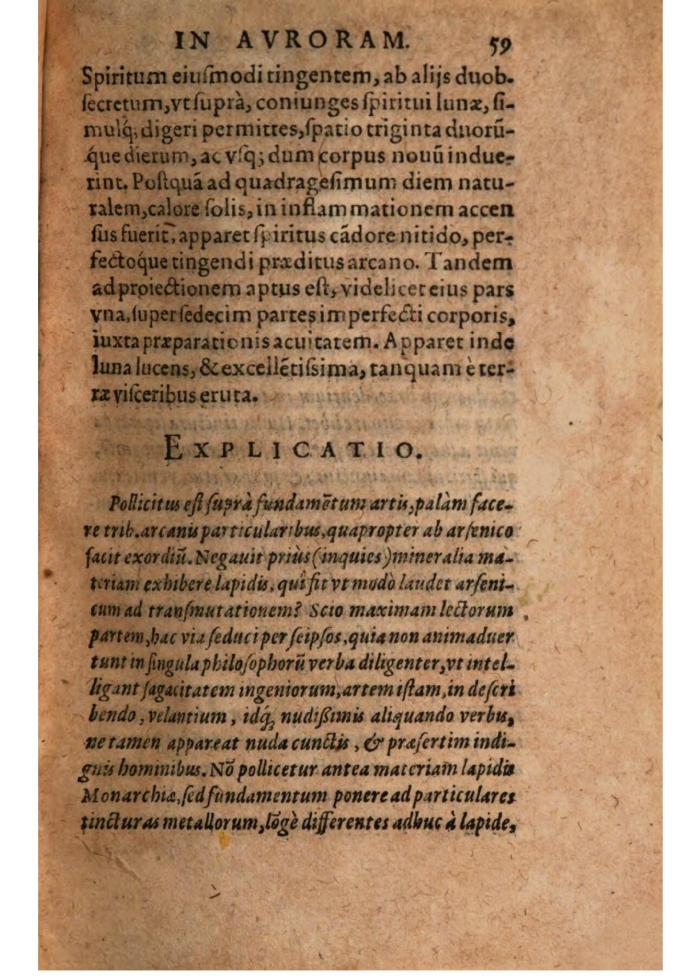 IN AVRORAM. 59
Spiritum eiuſmodi tingentem, ab alijs duob.
ſecretum, vt ſuprà, coniunges ſpiritui lunæ, ſi-
mulq́; digeri permittes, ſpatio triginta duorũ-
que dierum, ac vſq; dum corpus nouũ indue-
rint. Poſtquã ad quadrageſimum diem natu-
ralem, calore ſolis, in inflammationem accen
ſus fuerit, apparet ſpiritus cãdore nitido, per-
fectoque tingendi præditus arcano. Tandem
ad proiectionem aptus eſt, videlicet eius pars
vna, ſuper ſedecim partes imperfecti corporis,
iuxta præparationis acuitatem. Apparet inde
luna lucens, & excellẽtiſsima, tanquam è ter-
ræ viſceribus eruta.
EXPLICATIO.
Pollicitus eſt ſuprà fundamẽtum artis, palàm face-
re trib. arcanis particularibus, quapropter ab arſenico
facit exordiũ. Negauit priùs (inquies) mineralia ma-
teriam exhibere lapidis, qui fit vt modò laudet arſeni-
cum ad tranſmutationem? Scio maximam lectorum
partem, hac via ſeduci per ſeipſos, quia non animaduer
tunt in ſingula philoſophorũ verba diligenter, vt intel-
ligant ſagacitatem ingeniorum, artem iſtam, in deſcri
bendo, velantium, idq́, nudißimis aliquando verbis,
ne tamen appareat nuda cunctis, & præſertim indi-
gnis hominibus. Nõ pollicetur antea materiam lapidis
Monarchiæ, ſed fundamentum ponere ad particulares
tincturas metallorum, lõgè differentes adhuc à lapide,